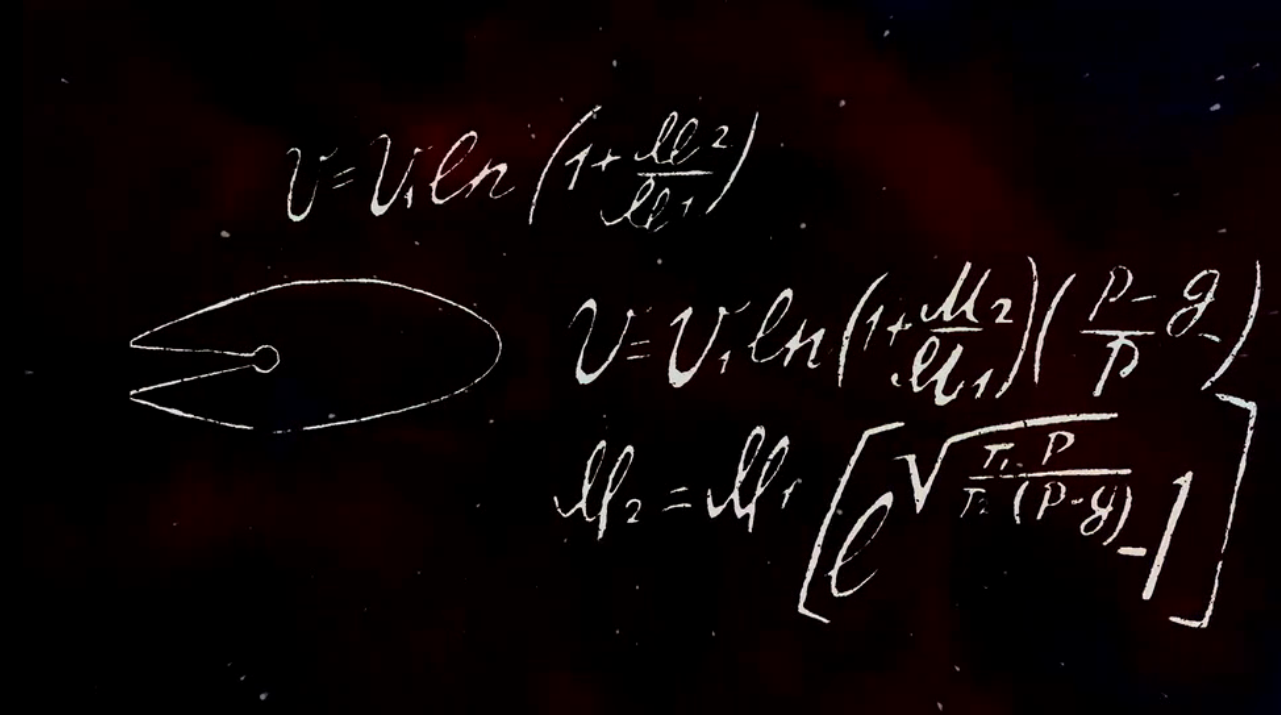 V=V₁ln(1+M₂/M₁)
V=V₁ln(1+M₂/M₁)(p-g/p)
M₂=M₁[e^√(T₁·p/T₂(p-g))-1]